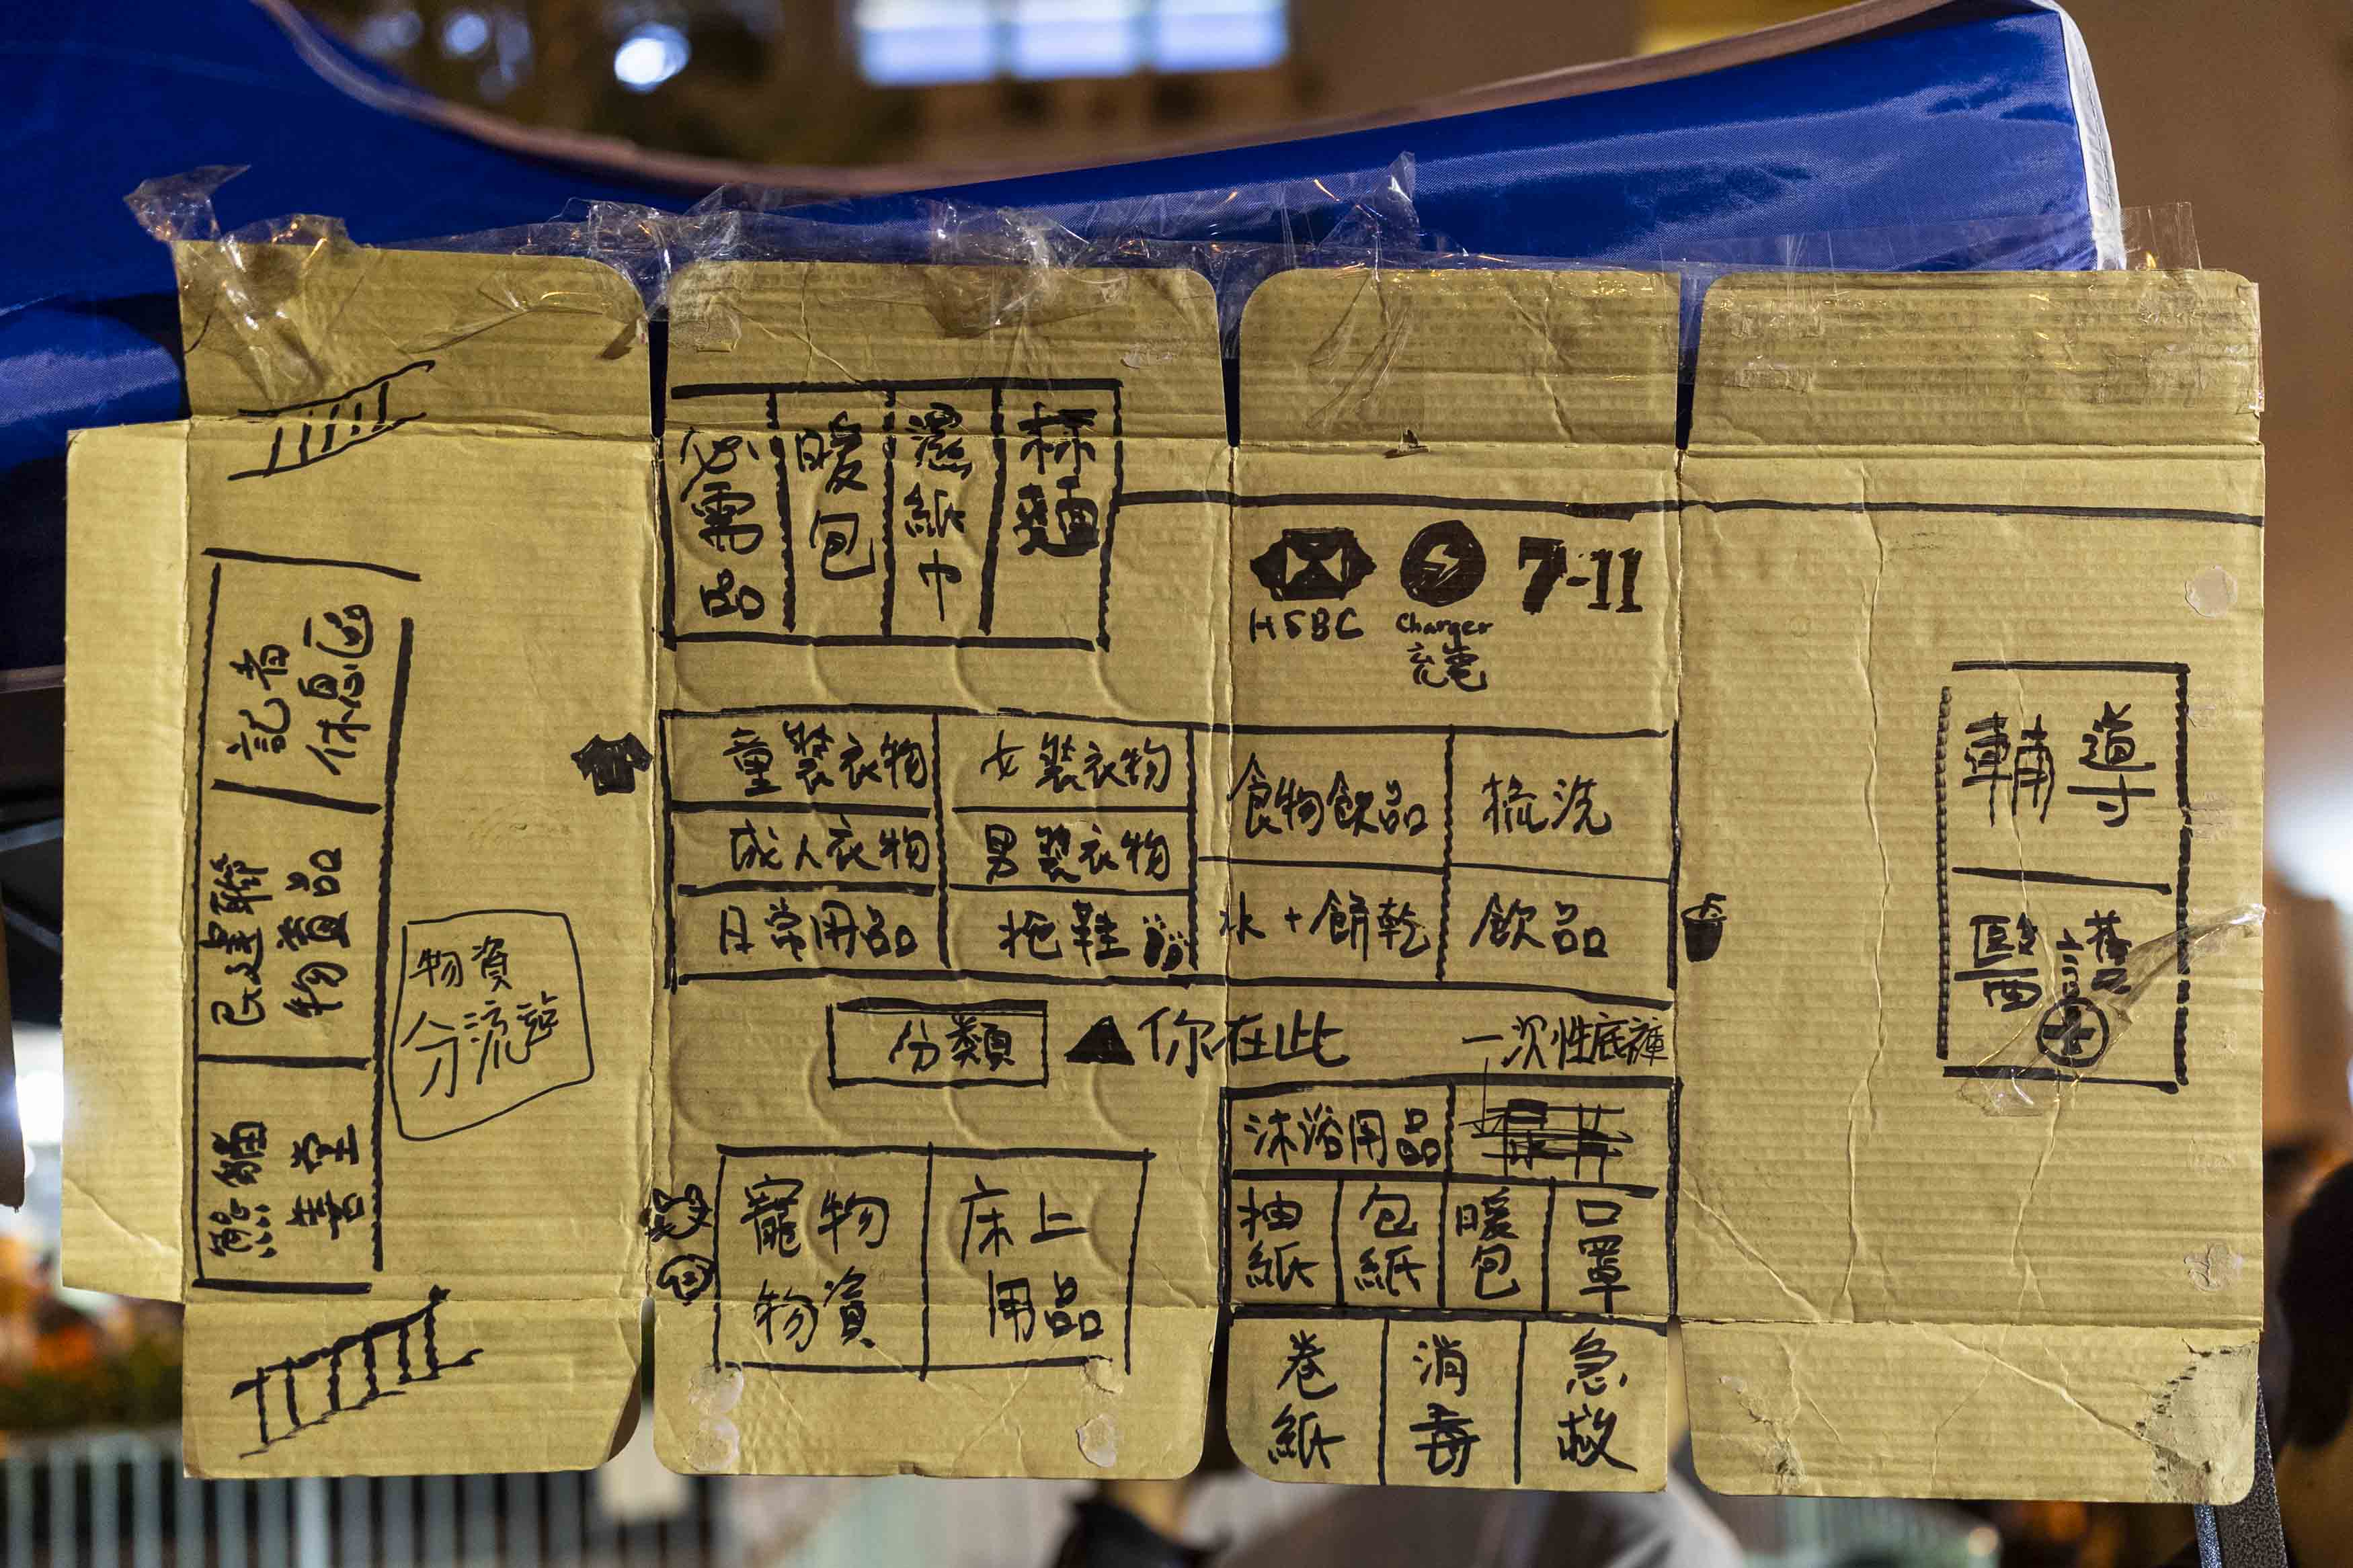 記者
休息區
民建聯
物資品
熊貓
善堂
物資
分流站
必需品
暖包
濕紙巾
HSBC
Charger
充電
7-11
童裝衣物
女裝衣物
成人衣物
男裝衣物
日常用品
拖鞋
食物飲品
梳洗
水+餅乾
飲品
分類
▲你在此
一次性底褲
沐浴用品
抽紙
包紙
暖包
口罩
寵物
物資
床上
用品
卷紙
消毒
急救
輔導
醫務